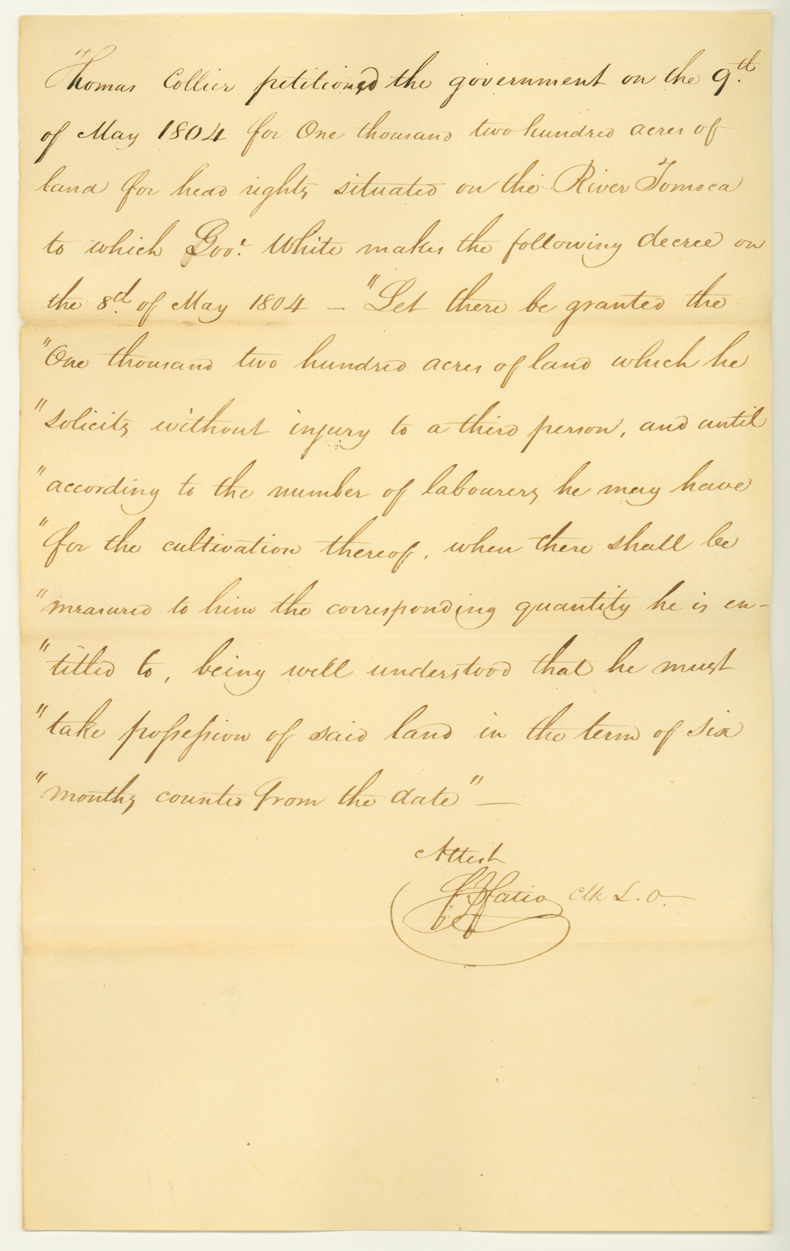 Thomas Collier petitioned the government on the 9.th
of May 1804 for One thousand two hundred acres of
land for head rights situated on the River Tomoca
to which Gov.r White makes the following decree on
the 8.th of May 1804 — "Let there be granted the
"One thousand two hundred acres of land which he
"solicits without injury to a third person, and until
"according to the number of labourers he may have
"for the cultivation thereof, when there shall be
"measured to him the corresponding quantity he is en-
"titled to, being well understood that he must
"take possession of said land in the term of six
"months counted from the date" —
Attest
F J Fatio Clk L. O.